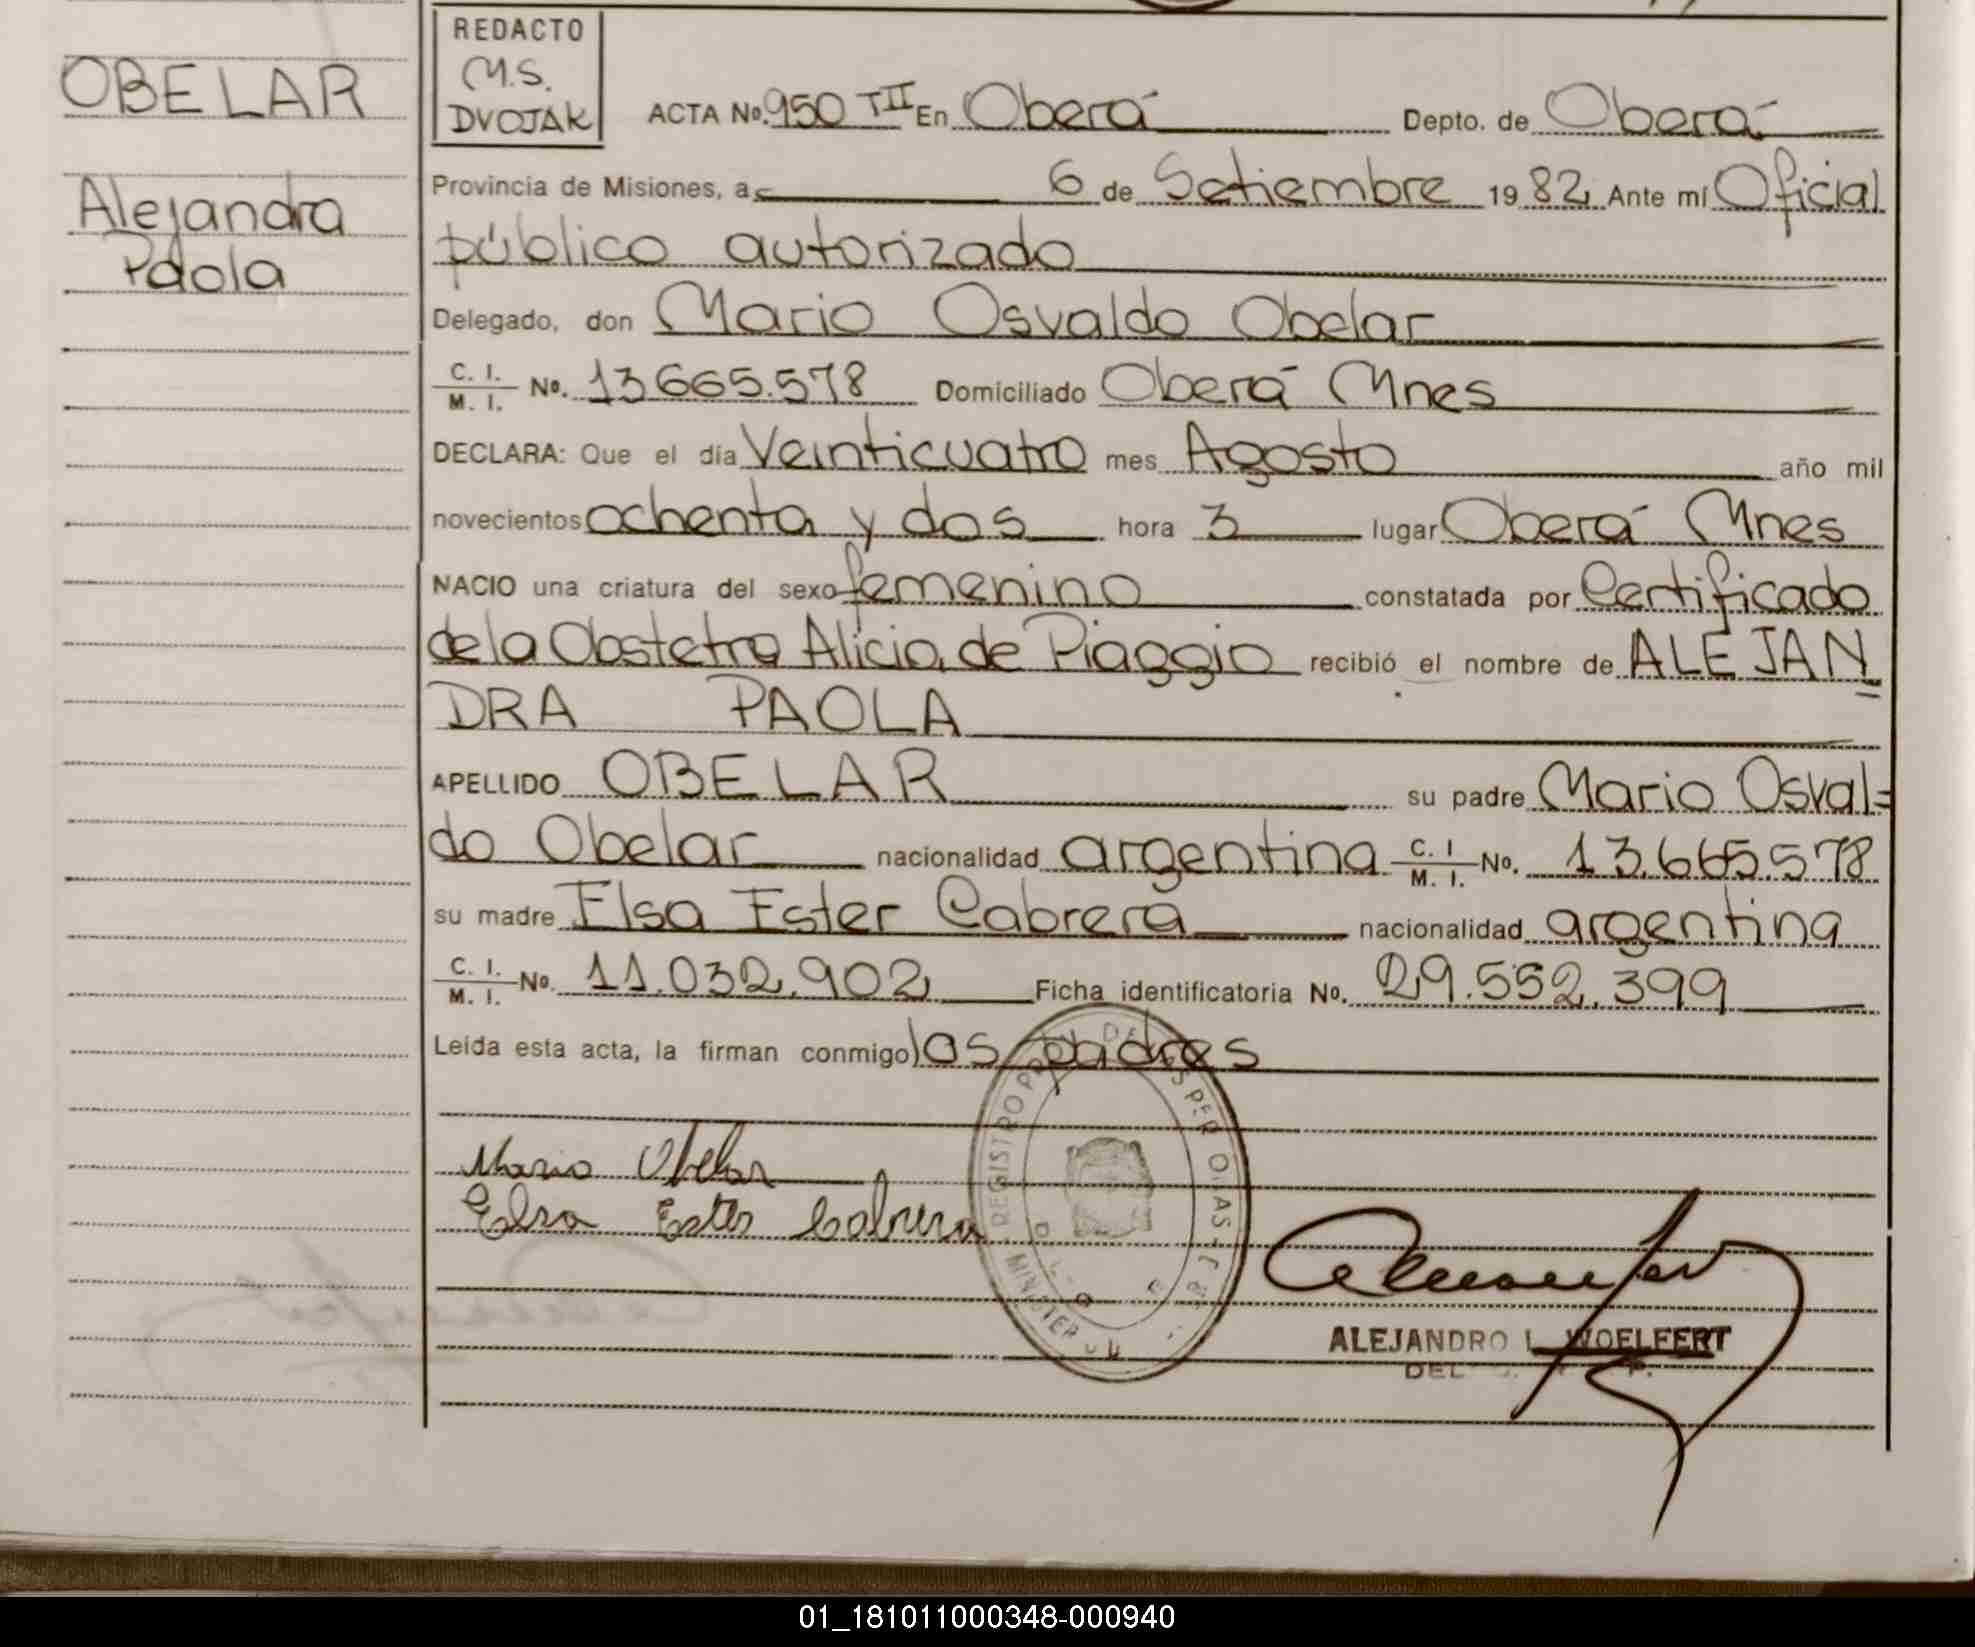 OBELAR
Alejandra
Paola
REDACTO
M.S.
DVOJAK
ACTA No. 950 TII En Oberá Depto. de Oberá
Provincia de Misiones, a 6 de Setiembre 1982 Ante mí Oficial
público autorizado
Delegado, don Mario Osvaldo Obelar
C. I. / M. I. No. 13665.578 Domiciliado Oberá Mnes
DECLARA: Que el día Veinticuatro mes Agosto año mil
novecientos ochenta y dos hora 3 lugar Oberá Mnes
NACIO una criatura del sexo femenino constatada por Certificado
de la Obstetra Alicia de Piaggio recibió el nombre de ALEJAN
DRA PAOLA
APELLIDO OBELAR su padre Mario Osval=
do Obelar nacionalidad argentina C. I / M. I. No. 13.665.578
su madre Elsa Ester Cabrera nacionalidad argentina
C. I. / M. I. No. 11.032.902 Ficha identificatoria No. 29.552.399
Leída esta acta, la firman conmigo los padres
Mario Obelar
Elsa Ester Cabrera
REGISTRO
ALEJANDRO L. WOELFERT
01_181011000348-000940